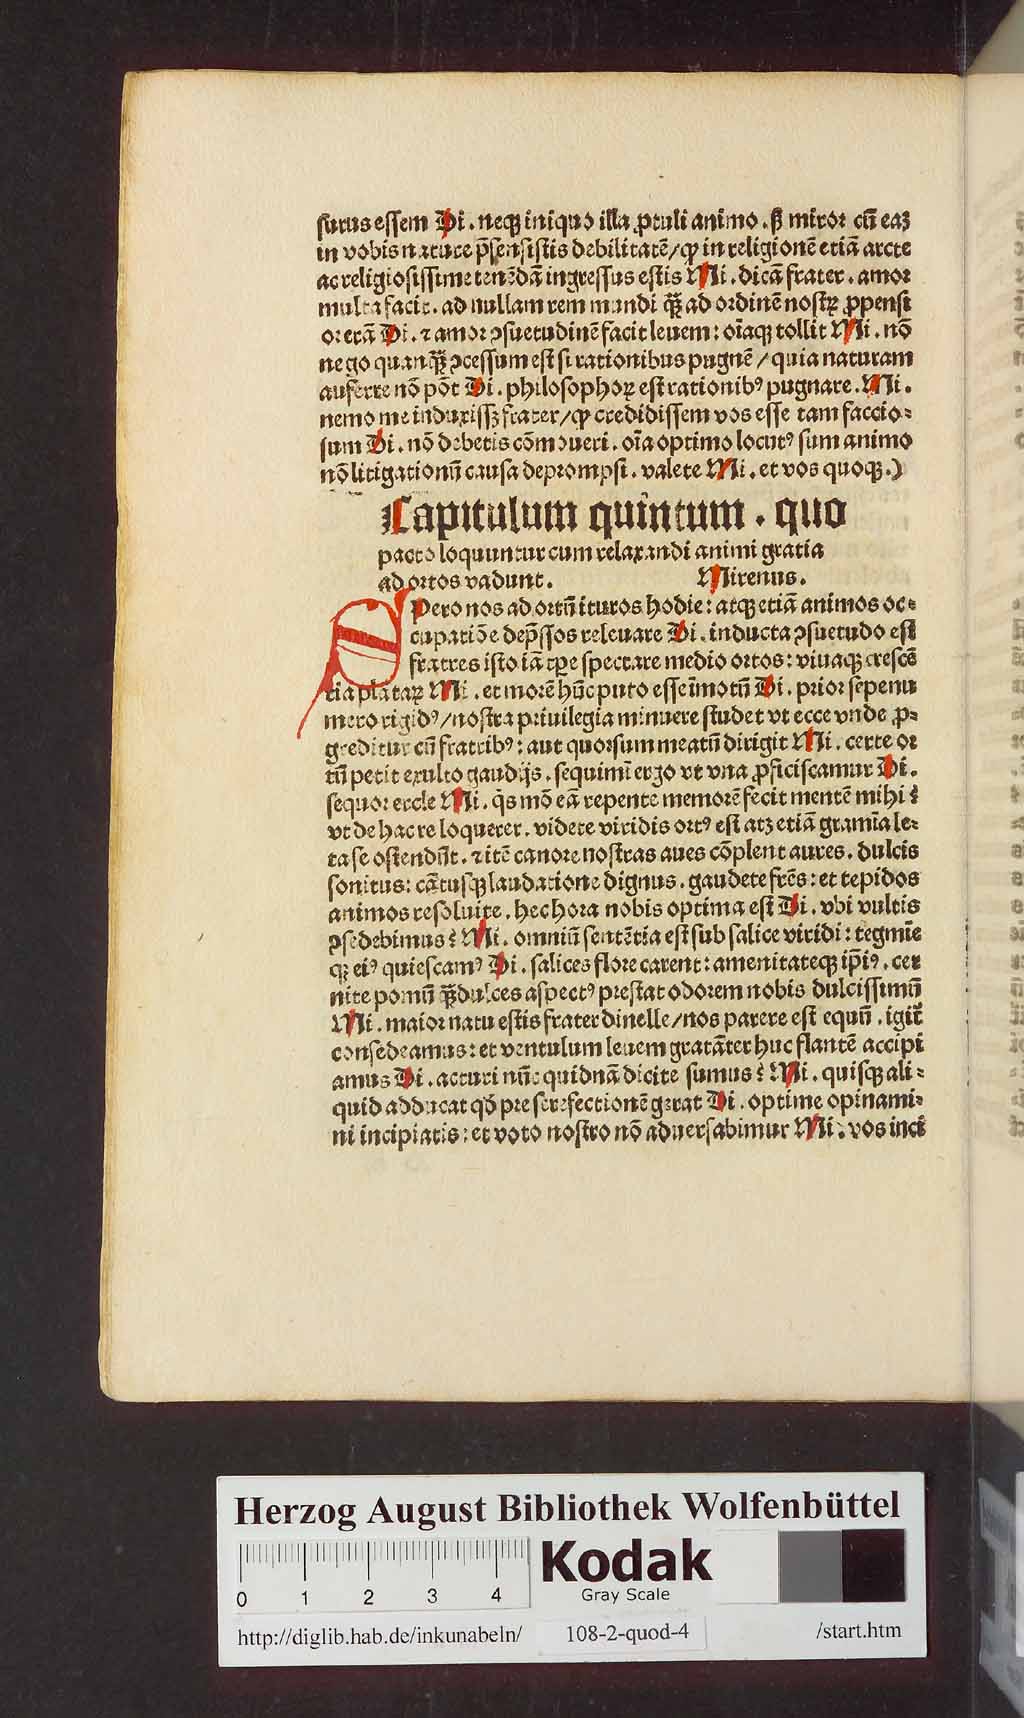 surus essem Di. neqꝫ iniquo illa ꝓtuli animo. sꝫ miror cū eaꝫ
in vobis nature p̄sensistis debilitatē/ ꝙ in religionē etiā arcte
ac religiosissime tenēdā ingressus estis Mi. dicā frater. amor
multa facit. ad nullam rem mundi qꝫ̄ ad ordinē nostꝝ ꝓpensi
or erā Di. ⁊ amor ꝯsuetudinē facit leuem: oīaqꝫ tollit Mi. nō
nego quanqꝫ̄ ꝯcessum est si rationibus pugnē/ quia naturam
auferre nō pōt Di. philosophoꝝ est rationibꝰ pugnare. Mi.
nemo me induxissꝫ frater/ ꝙ credidissem vos esse tam faccio⸗
sum Di. nō debetis cōmoueri. oīa optimo locutꝰ sum animo
nō litigationū causa deprompsi. valete Mi. et vos quoqꝫ.)
Capitulum quintum. quo
pacto loquuntur cum relaxandi animi gratia
ad ortos vadunt. Mirenus.
Spero nos ad ortū ituros hodie: atqꝫ etiā animos oc⸗
cupatiōe dep̄ssos releuare Di. inducta ꝯsuetudo est
fratres isto iā tꝑe spectare medio ortos: viuaqꝫ crescē
tia plataꝝ Mi. et morē hūc puto esse īmotū Di. prior sepenu
mero rigidꝰ/ nostra priuilegia minuere studet vt ecce vnde ꝓ⸗
greditur cū fratribꝰ: aut quorsum meatū dirigit Mi. certe or
tū petit exulto gaudijs. sequimī ergo vt vna ꝓficiscamur Di.
sequor eccle Mi. q̇s mō eā repente memorē fecit mentē mihi?
vt de hac re loquerer. videte viridis ortꝰ est atꝫ etiā gramīa le⸗
ta se ostendūt. ⁊ itē canore nostras aues cōplent aures. dulcis
sonitus: cātusqꝫ laudatione dignus. gaudete frēs: et tepidos
animos resoluite. hec hora nobis optima est Di. vbi vultis
ꝯsedebimus? Mi. omniū sentētia est sub salice viridi: tegmīe
qꝫ eiꝰ quiescamꝰ Di. salices flore carent: amenitateqꝫ ip̄iꝰ. cer
nite pomū qꝫ̄ dulces aspectꝰ prestat odorem nobis dulcissimū
Mi. maior natu estis frater dinelle/ nos parere est equū. igit̄
consedeamus: et ventulum leuem gratāter huc flantē accipi
amus Di. acturi nūc quidnā dicite sumus? Mi. quisqꝫ ali⸗
quid adducat qd̄ pre se refectionē gerat Di. optime opinami⸗
ni incipiatis: et voto nostro nō aduersabimur Mi. vos inci
Herzog August Bibliothek Wolfenbüttel
0 1 2 3 4
Kodak
Gray Scale
http://diglib.hab.de/inkunabeln/ 108-2-quod-4 /start.htm